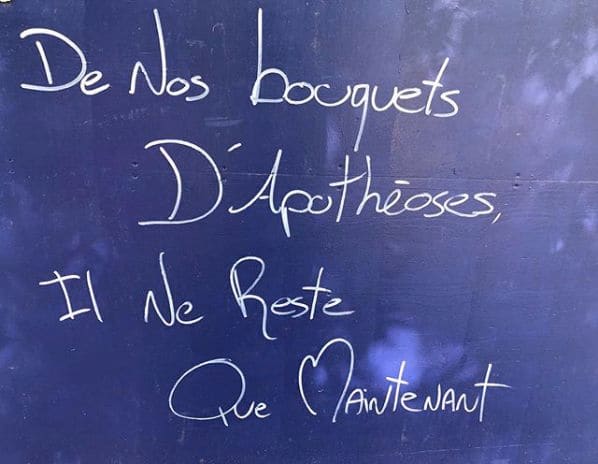 De Nos bouquets
D'Apothéoses,
Il Ne Reste
Que Maintenant